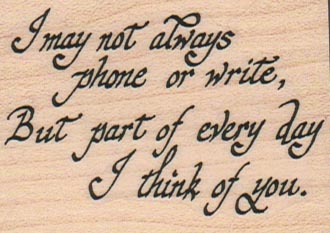 I may not always
phone or write,
But part of every day
I think of you.